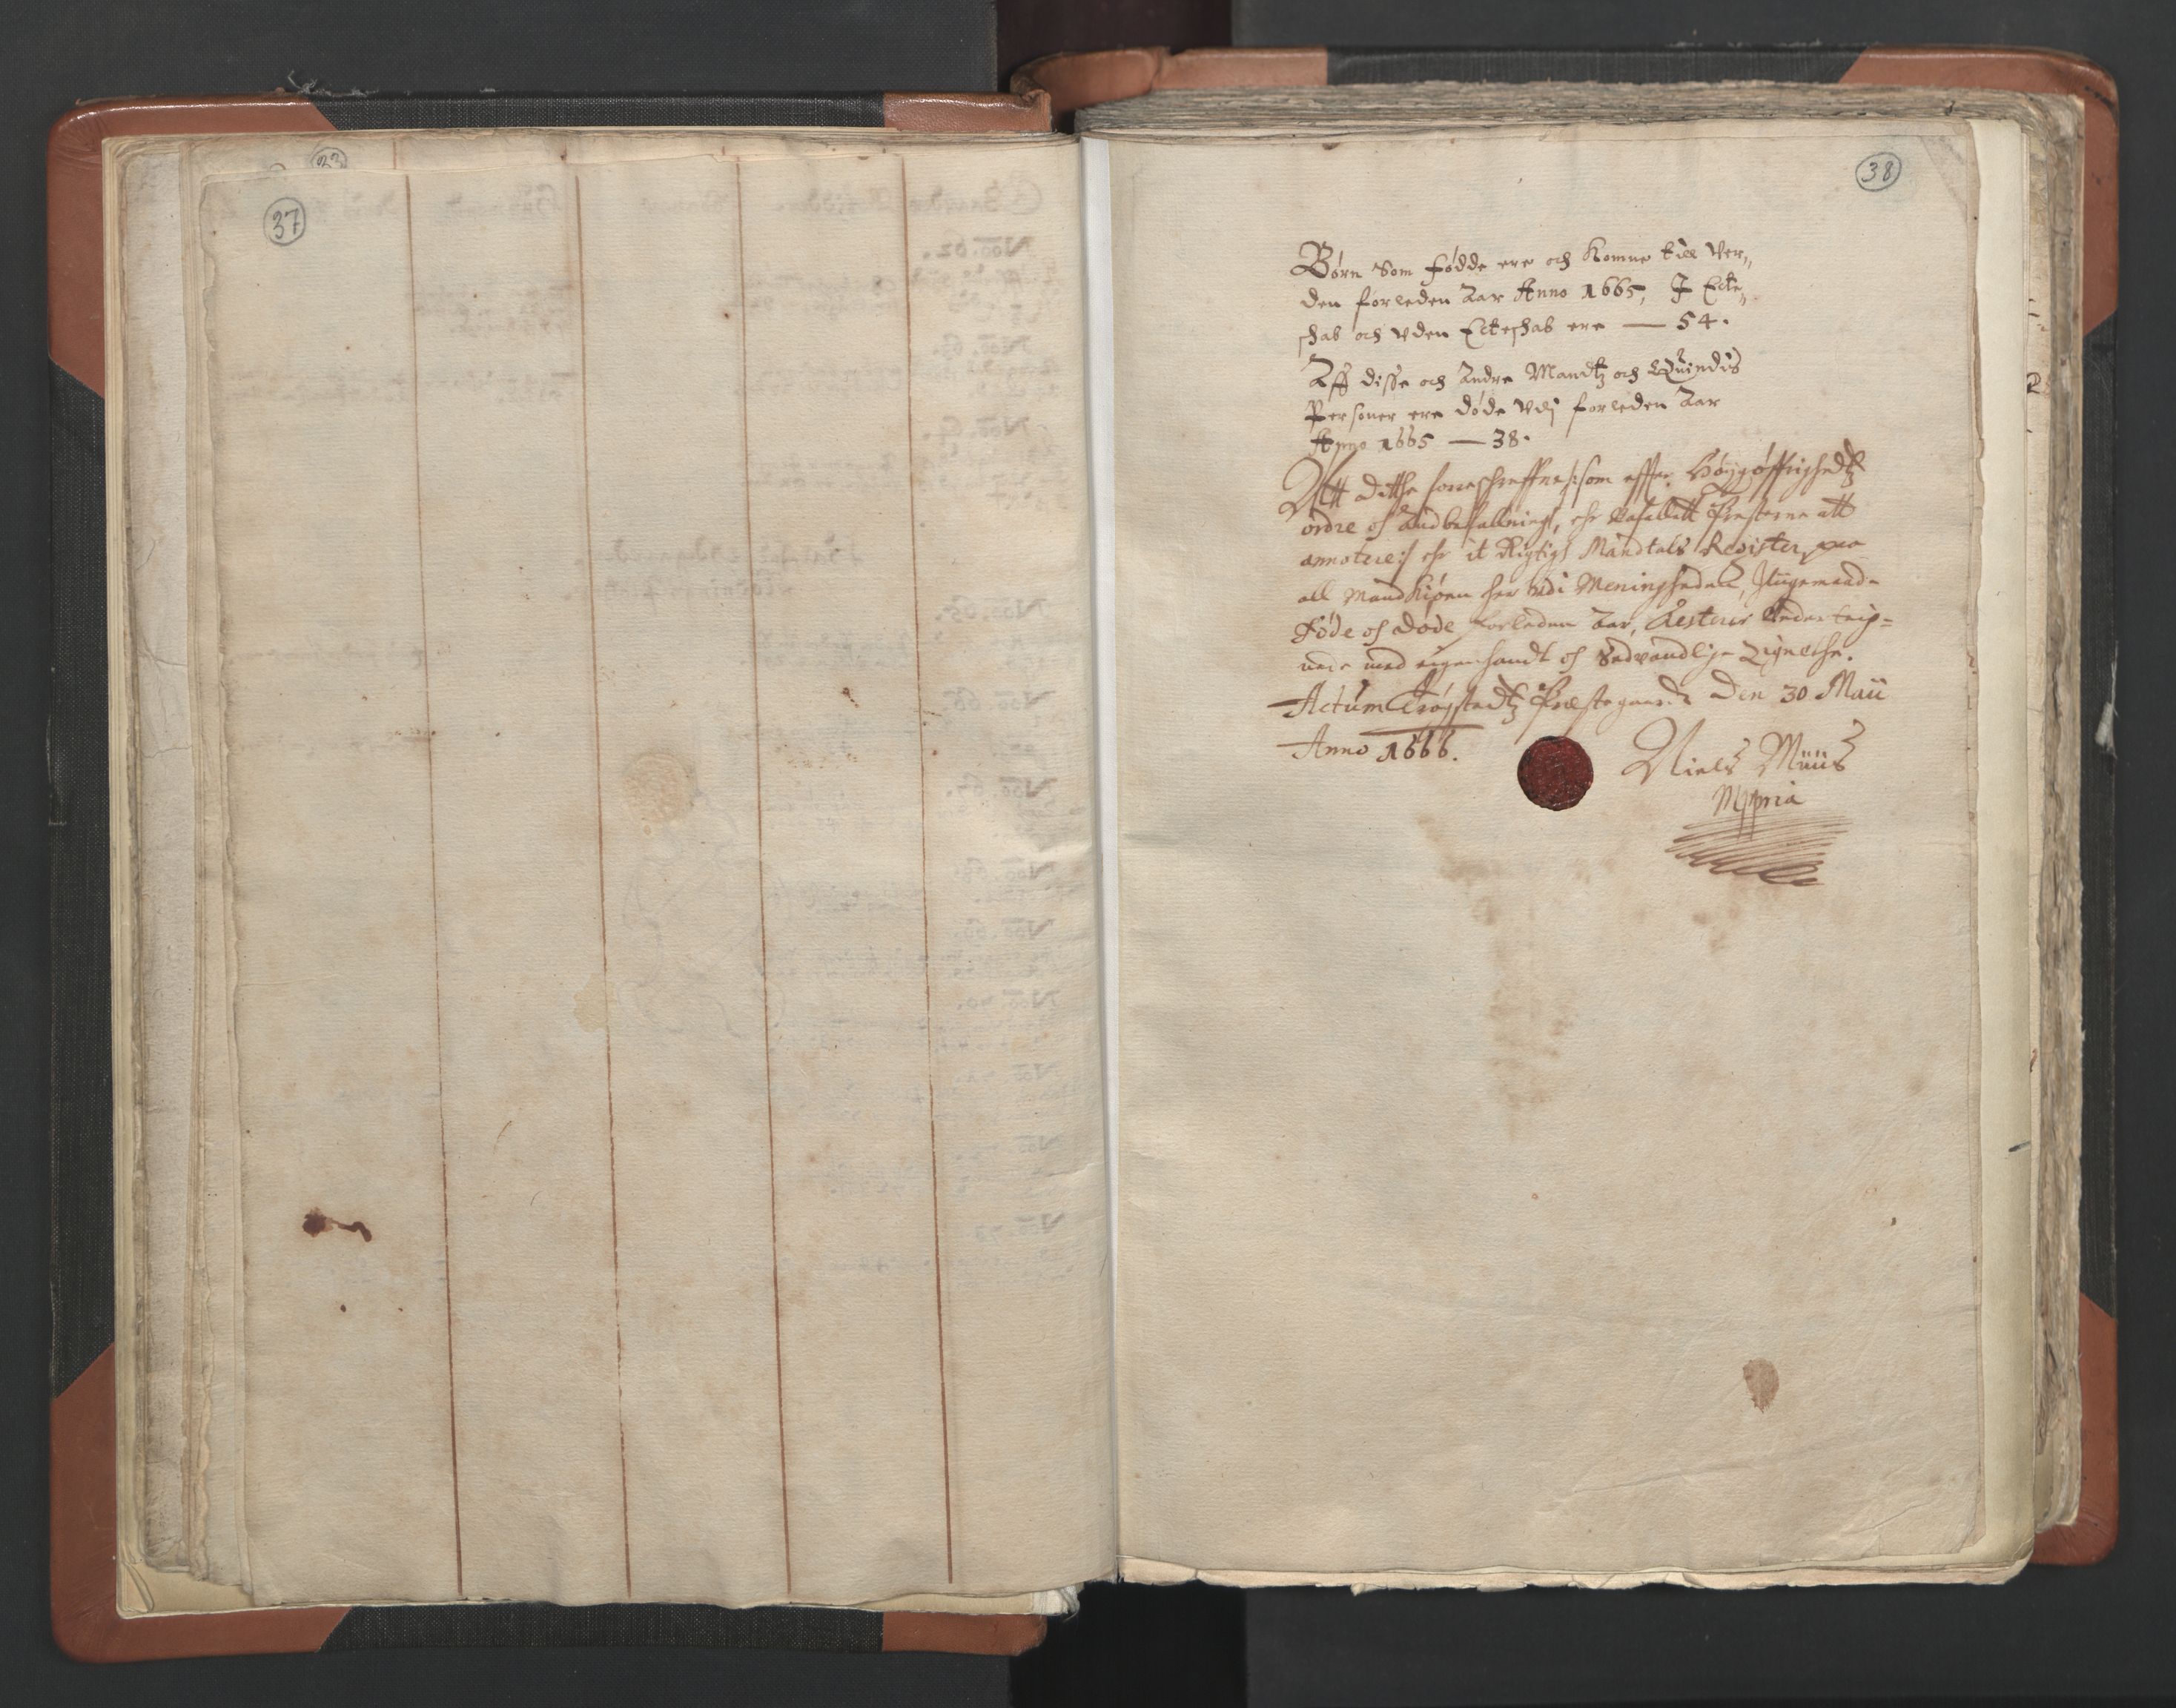 37
38
Børn Som fødde ere och komne till Ver„
den forleden Aar Anno 1665, I Ecte„
schab och vden Ecteschab ere — 54.
Aff disse och Andre Mandtz och Quindis
Personer ere døde Vdj forleden Aar
Anno 1665 — 38.
Att dette forreschreffne /:som effter Høyøffrighedtz
ordre of Andbefallning, er befallitt Presterne att
annotere:/ er it Rigtigt Mandtals Register, paa
all Mandkiøen her vdi Menigheden, Iligemaade
Føde of døde forleden Aar, Testerer Vnderteig=
nede med egenhandt of Sedvandlige Zignethe.
Actum Trøgstadtz Præstegaard Den 30 Maii
Anno 1666.
Niels Müüs
Mppria